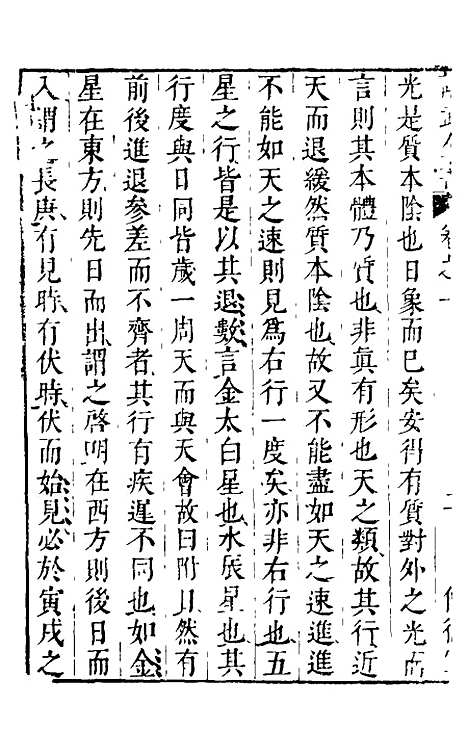 光是質本陰也日象而已矣安得有質對外之光而
言則其本體乃質也非眞有形也天之類故其行近
天而退緩然質本陰也故又不能盡如天之速進進
不能如天之速則見爲右行一度矣亦非右行也五
星之行皆是以其退數言金太白星也水辰星也其
行度與日同皆歲一周天而與天會故曰附日然有
前後進退參差而不齊者其行有疾遲不同也如金
星在東方則先日而出謂之啓明在西方則後日而
入謂之長庚有見時有伏時伏而始見必於寅戌之